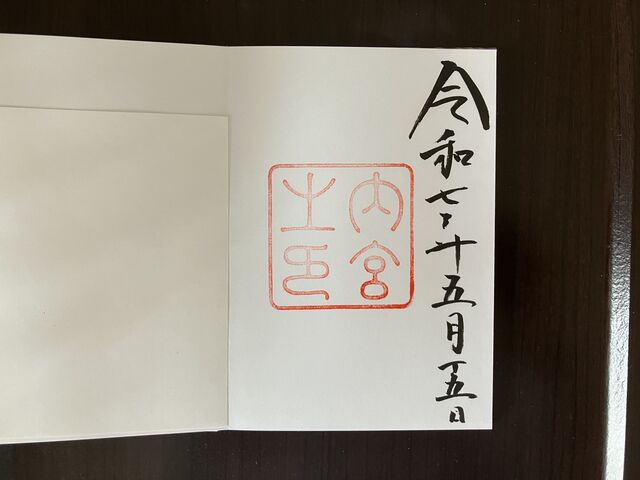 令和七年五月十五日
内宮
之印